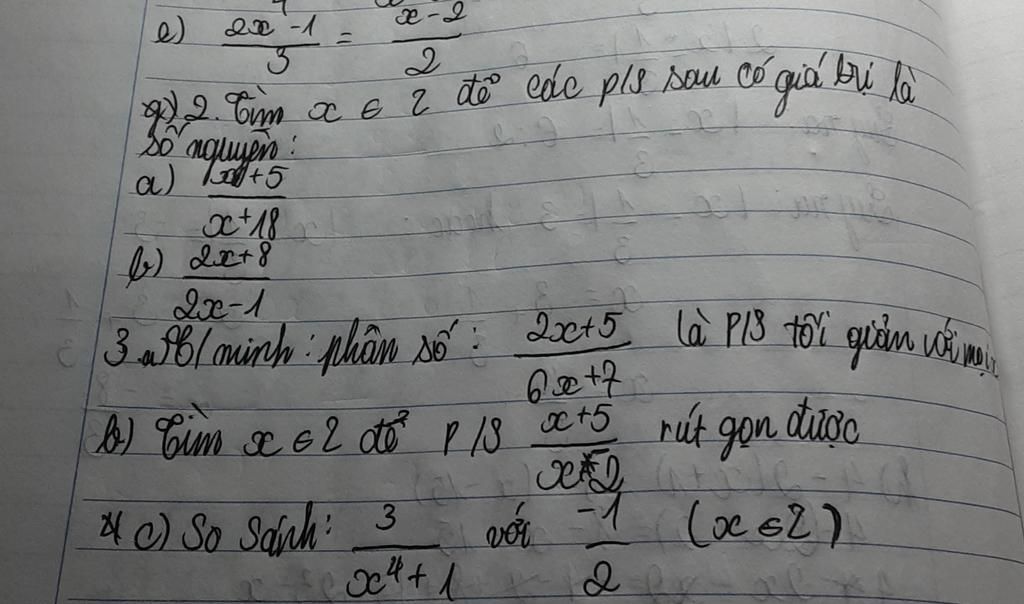 e) (2x - 1)/3 = (x - 2)/2
g) 2. Tìm x ∈ Z để các p/s sau có giá trị là
số nguyên:
a) (x+5)/(x+18)
b) (2x+8)/(2x-1)
3. a) C/minh: phân số: (2x+5)/(6x+7) là P/S tối giản với mọi x
b) Tìm x ∈ Z để P/S (x+5)/(x-2) rút gọn được
4 c) So sánh: 3/(x⁴+1) với -1/2 (x ∈ Z)